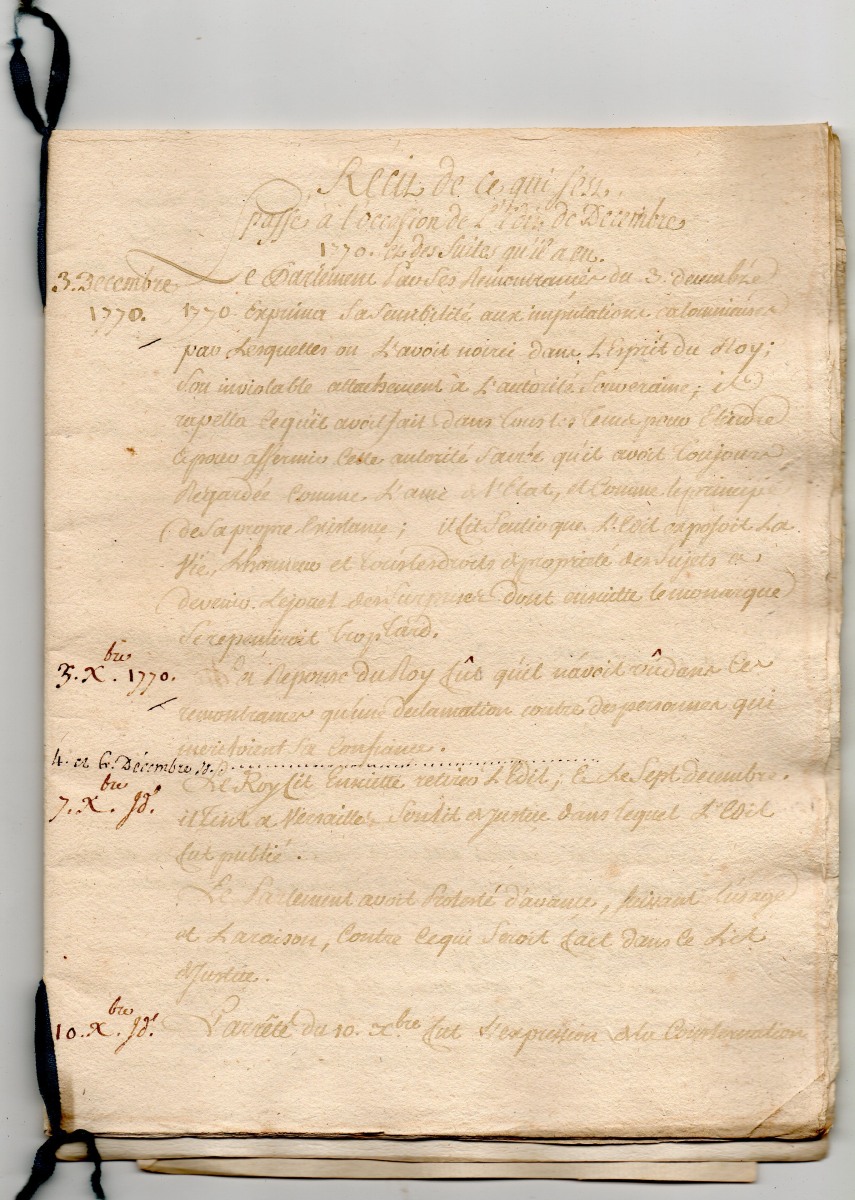 Récit de ce qui s'est
passé à l'occasion de l'Edit de Decembre
1770. et des suites qu'il a eu.
3. Decembre
1770.
Le Parlement par ses Rémontrances du 3. decembre
1770 exprima sa sensibilité aux imputations calomnieuses
par lesquelles on l'avoit noirci dans l'Esprit du Roy;
son inviolable attachement à l'autorité souveraine; il
rapella ce qu'il avoit fait dans tous les tems pour Etendre
& pour affermir cette autorité sacrée qu'il avoit toujours
Regardée comme l'ame de l'Etat, et comme le principe
de sa propre Existance; il fit sentir que l'Edit exposoit la
vie, l'honneur et tous les droits de propriete des sujets a
devenir le jouet des surprises dont ensuitte le monarque
se repentiroit trop tard.
3. Xbre 1770.
La Reponse du Roy fût qu'il n'avoit vû dans ces
remontrances qu'une declamation contre des personnes qui
meritoient sa confiance.
4. et 6. Décembre
7. Xbre jd.
Le Roy fit Ensuitte retirer l'Edit; & le sept decembre.
il tint a Versailles son lit de Justice dans lequel l'Edit
fut publié.
Le Parlement avoit Protesté d'avance, suivant l'usage
et la raison, contre ce qui seroit fait dans ce Lit
de Justice.
10. Xbre. jd.
L'arrêté du 10. Xbre fut l'expression de la Consternation